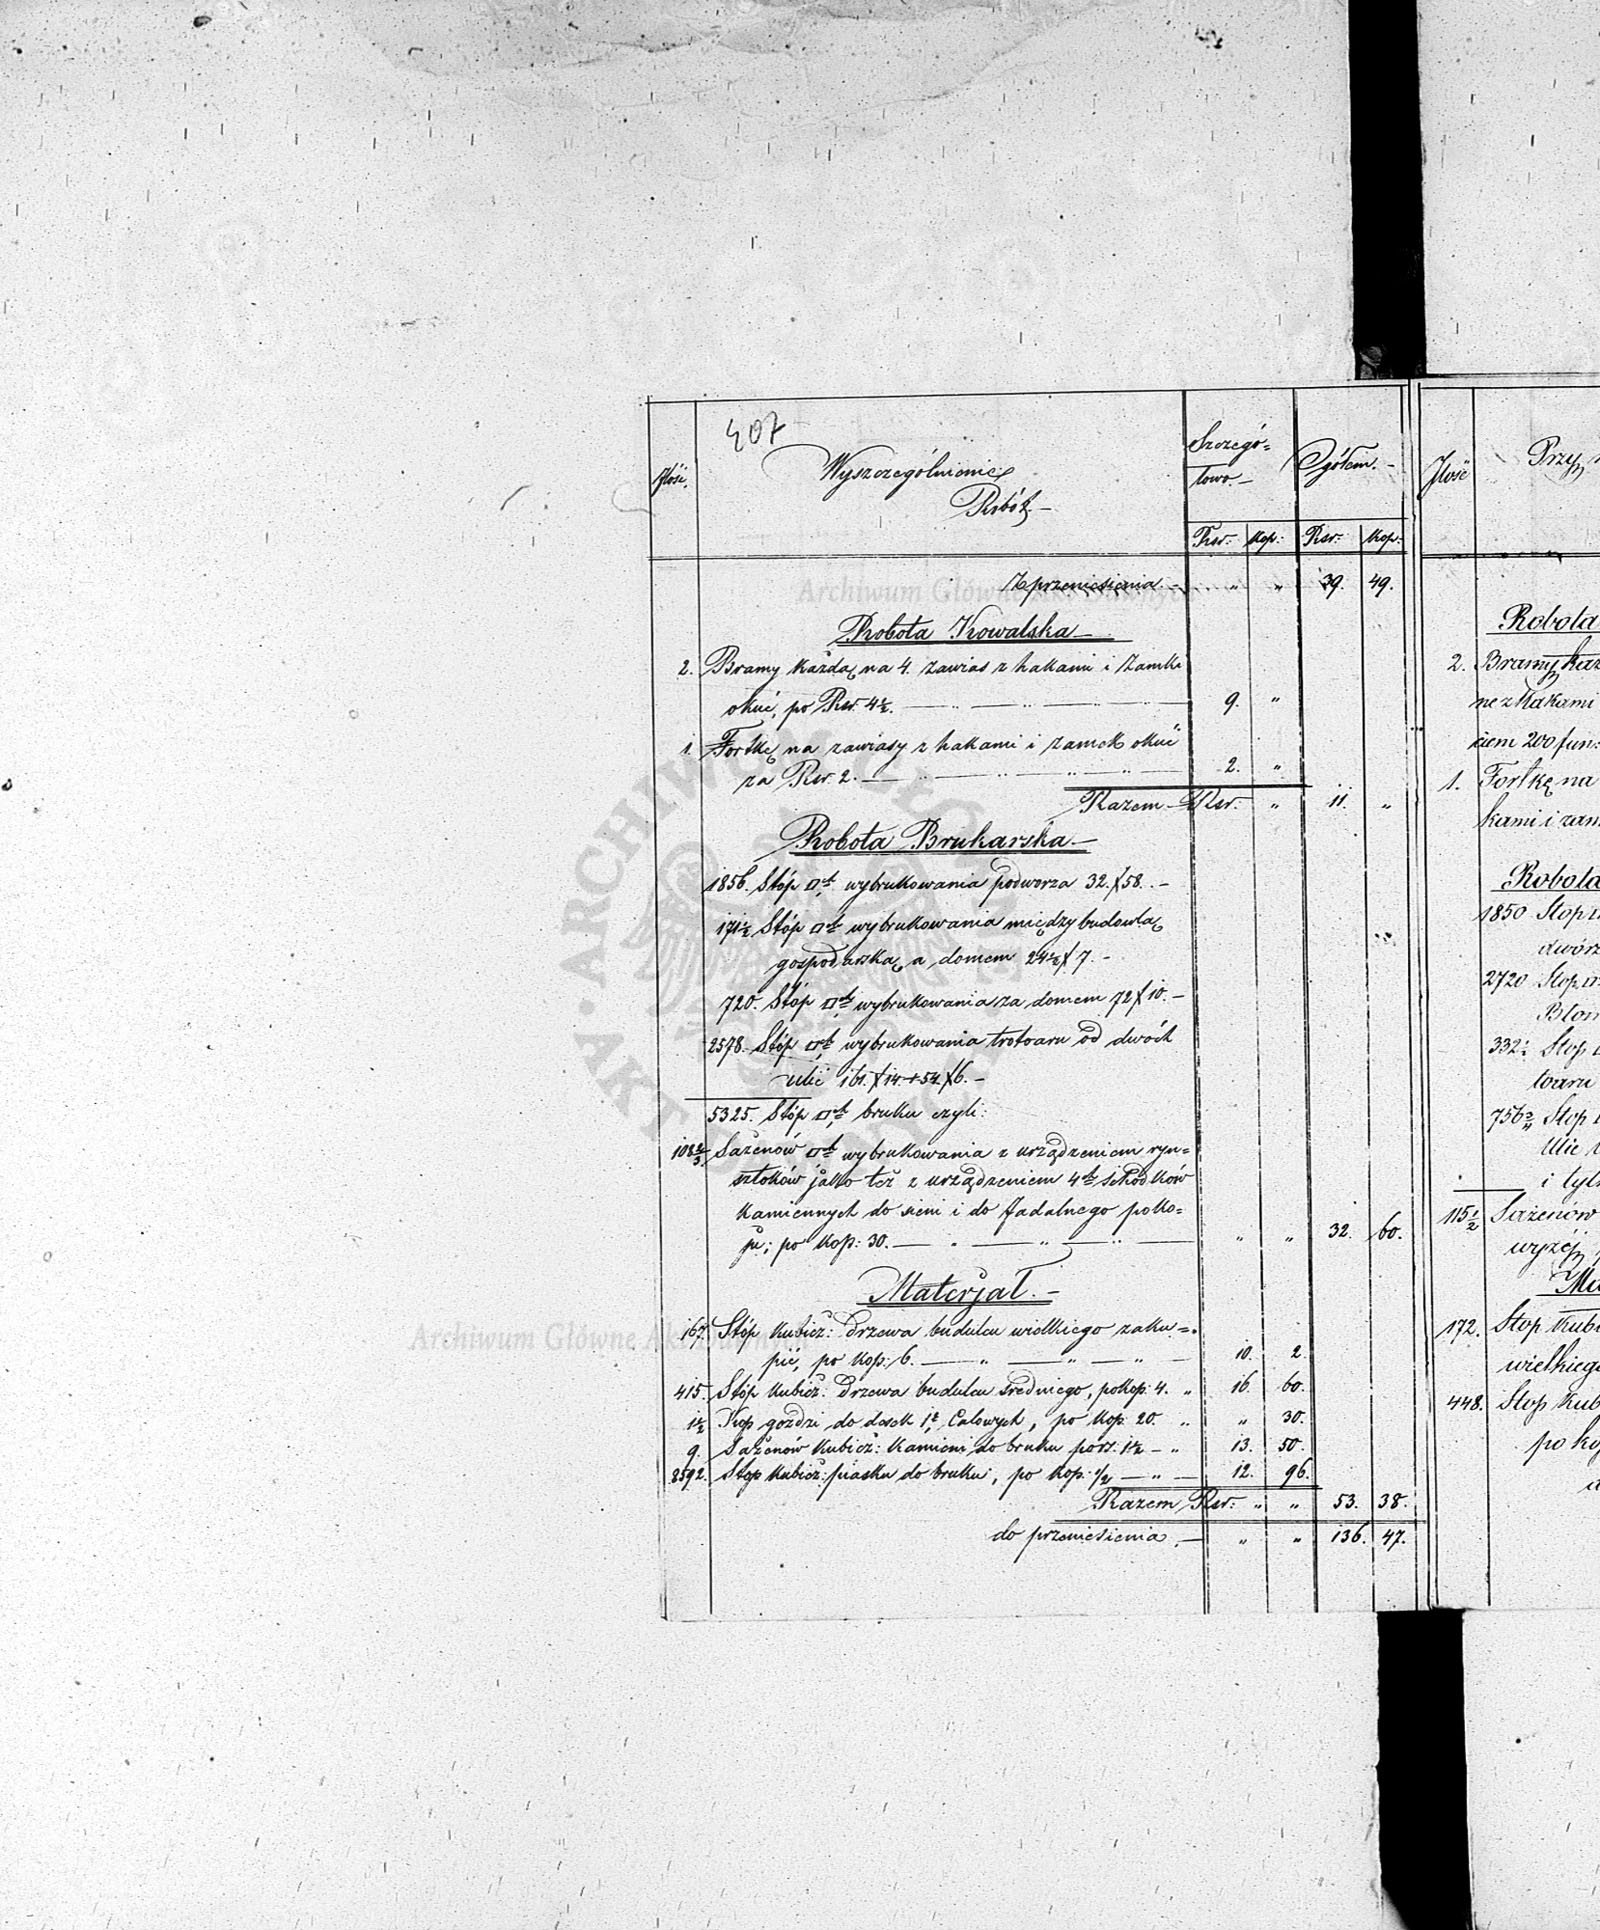 407
Ilość.
Wyszczególnienie
Robót.—
Szczegó=
łowo.—
Ogółem.—
Rsr: Kop: Rsr: Kop:
Z przeniesienia.— „ „ 39. 49.
Robota Kowalska
2. Bramy każdą na 4. zawias z hakami i Zamki
okuć, po Rsr. 4½. — „ — „ — „ — 9. „
1. Fortkę na zawiasy z hakami i zamek okuć
za Rsr. 2. — „ — „ — „ — „ — 2. „
Razem Rsr. „ 11. „
Robota Brukarska
1856. Stóp □ wybrukowania podworza 32.×58.—
171½ Stóp □ wybrukowania między budowlą
gospodarską a domem 24½×7.—
720. Stóp □ wybrukowania za domem 72×10.—
2578. Stóp □ wybrukowania trotoaru od dwóch
ulic 161.×14.+54.×6.—
5325. Stóp □ bruku czyli:
108⅔ Sażenów □ wybrukowania z urządzeniem ryn=
sztoków jako też z urządzeniem 4 schodków
kamiennych do sieni i do Jadalnego poko=
ju; po kop: 30. — „ — „ — „ — „ „ 32. 60.
Materjał.—
167. Stóp Kubicz: Drzewa budulcu wielkiego zaku=
pić, po Kop: 6. — „ — „ — „ — 10. 2.
415. Stóp Kubicz: Drzewa budulcu średniego, po Kop: 4. „ 16. 60.
1½ Kop goździ do desek Calowych, po Kop. 20. „ „ 30.
9. Sażenów Kubicz: Kamieni do bruku po rs. 1½ — „ 13. 50.
2592. Stóp Kubicz: piasku do bruku, po Kop. ½ — „ — 12. 96.
Razem Rsr: „ „ 53. 38.
do przeniesienia.— „ „ 136. 47.
Ilość
Robota
2. Bramy
nez hakami
ciem 200 fun:
1. Fortkę na
kami i zam
Robota
1850 Stop
2720 Stop.
332½ Stop
toaru
756 Stop
Ulic
i tyl
115½ Sażenów
wyżej
172. Stop Kubi
wielkiego
448. Stop Kub
po ko
Archiwum Główne Akt Dawnych
Archiwum Główne Akt Dawnych
ARCHIWUM GŁÓWNE AKT DAWNYCH